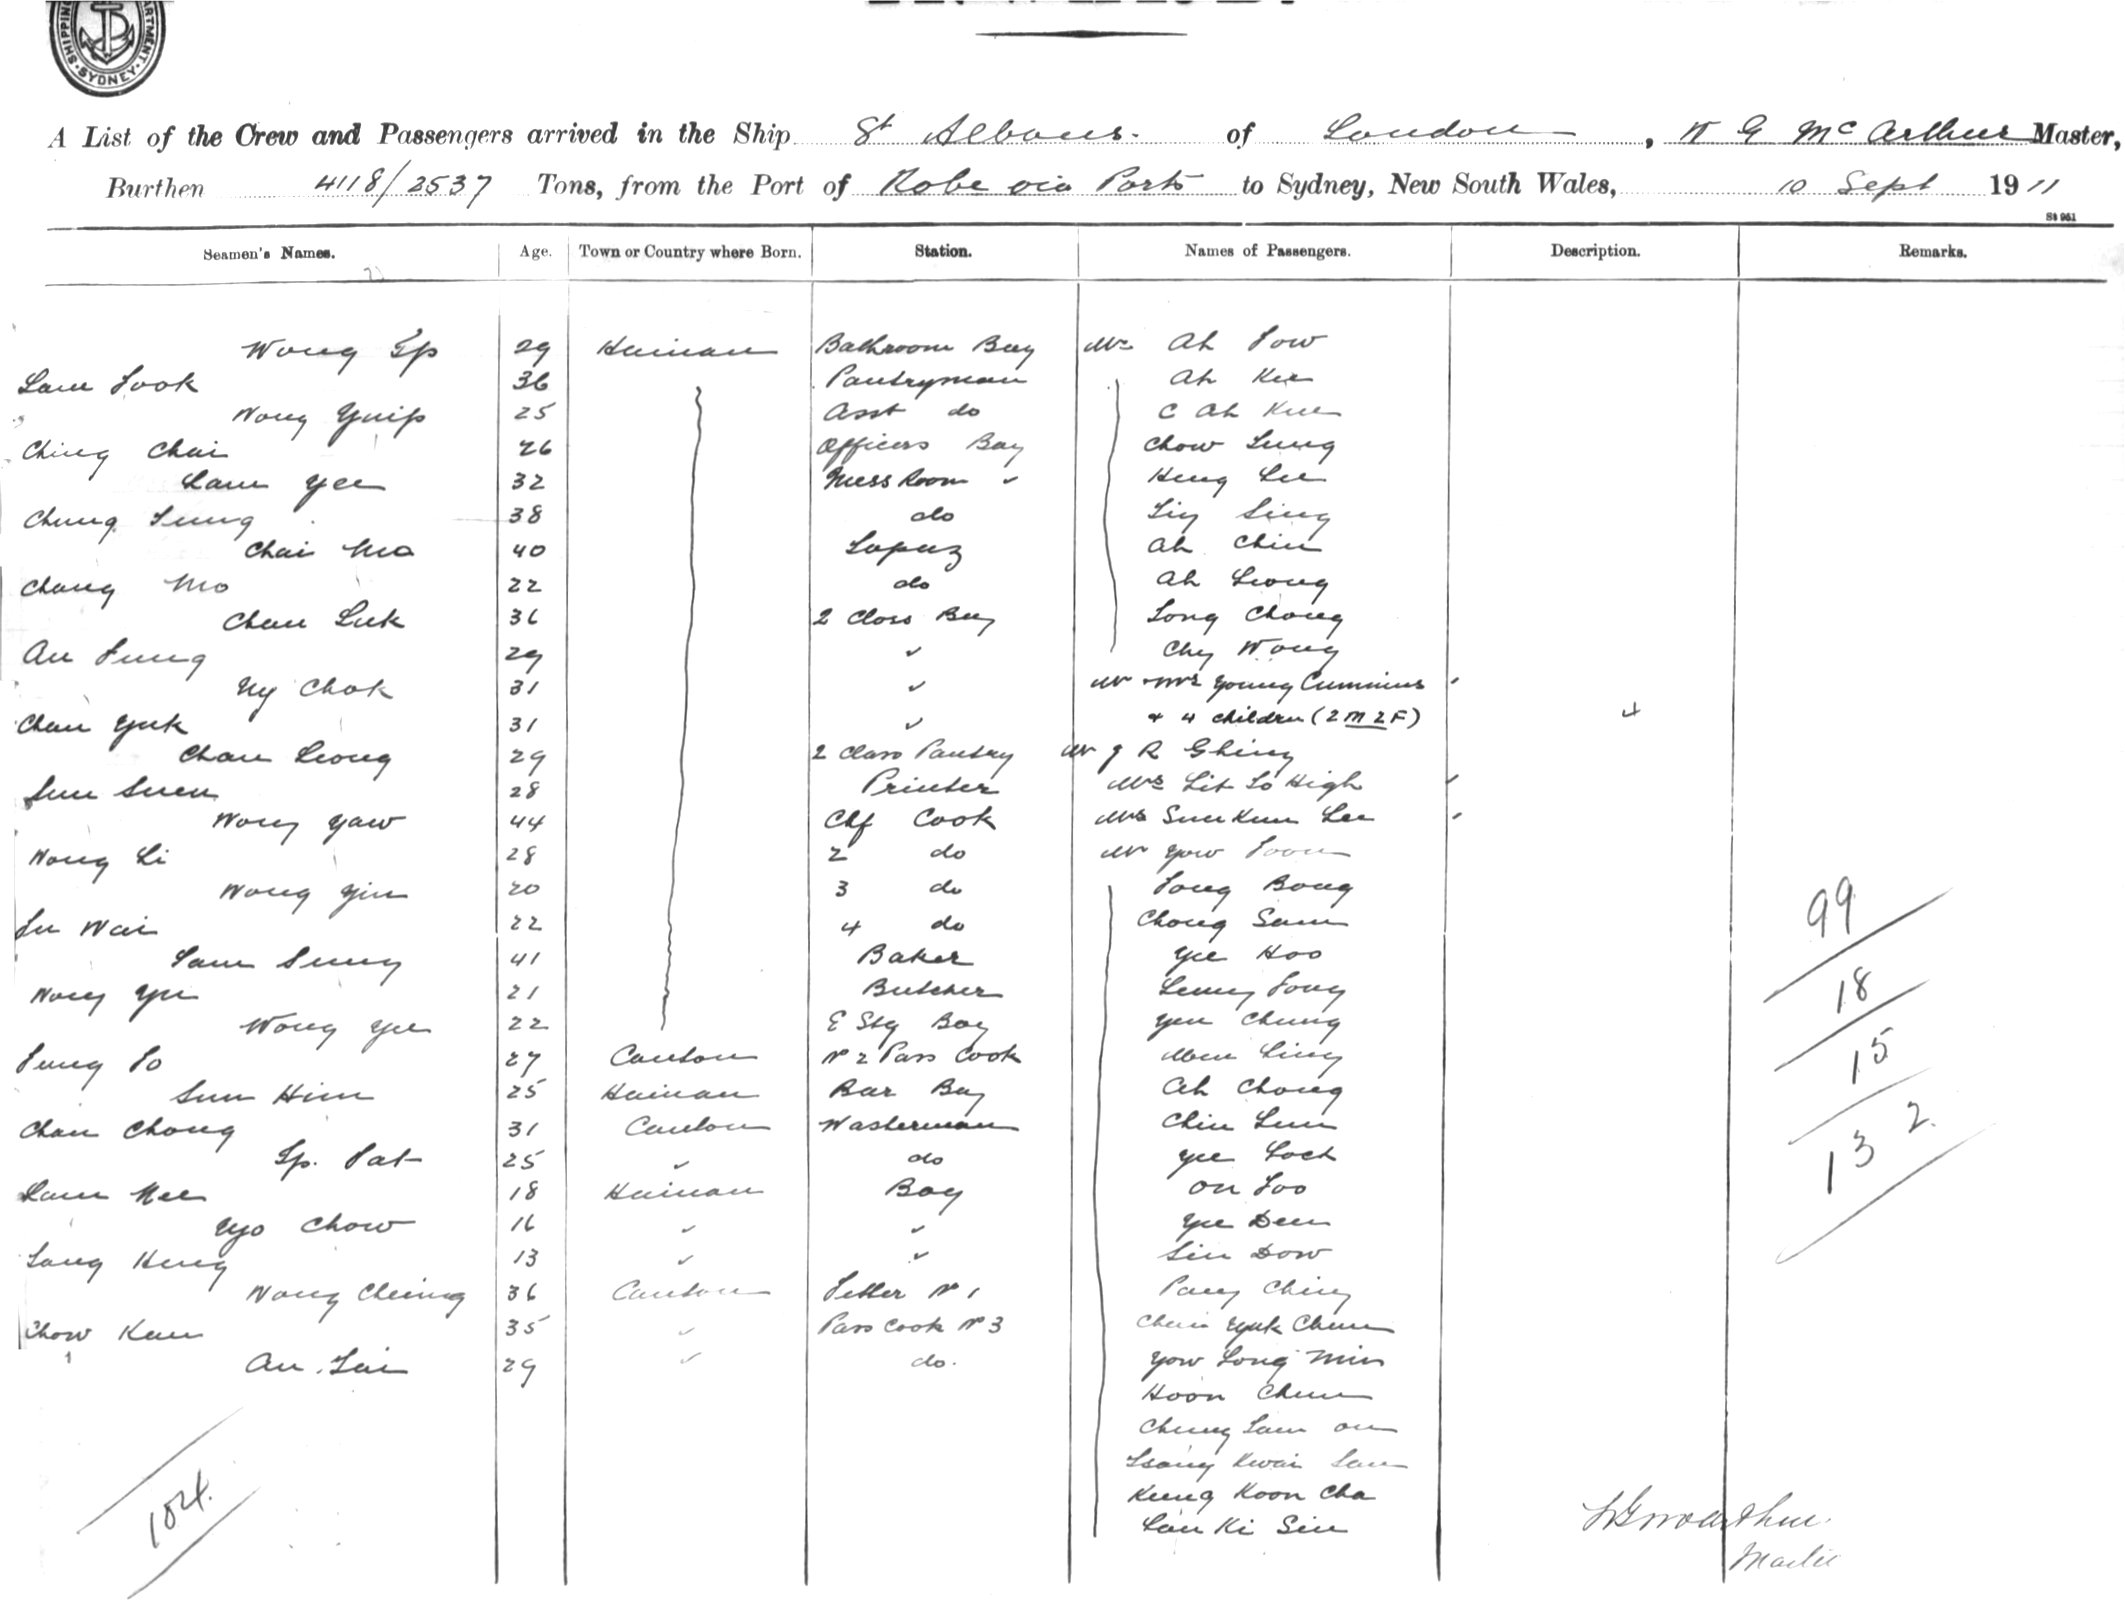 SHIPPING DEPARTMENT SYDNEY
A List of the Crew and Passengers arrived in the Ship St Albans. of London, W G McArthur Master,
Burthen 4118/2537 Tons, from the Port of Kobe via Ports to Sydney, New South Wales, 10 Sept 1911
St 961
Seamen's Names. Age. Town or Country where Born. Station. Names of Passengers. Description. Remarks.
Wong Ip 29 Hainan Bathroom Boy Mr Ah Fow
Lam Fook 36 Pantryman Ah Kee
Wong Yuip 25 Asst do C Ah Kue
Ching Chai 26 Officers Boy Chow Lung
Lam Yee 32 Mess Room ✓ Heng Lee
Chung Sung 38 do Sing
Chai Mo 40 Lapuz Ah Chin
Chang Mo 22 do Ah Leong
Chan Luk 36 2 Class Boy Long Chong
Au Fung 29 ✓ Chy Wong
Ny Chok 31 ✓ Mr & Mrs Young Cummins
Chan Yuk 31 ✓ & 4 children (2 M 2 F) 4
Chan Leong 29 2 Class Pantry Mr J R Ghing
Sun Suen 28 Printer Mrs Lit So High
Wong Yaw 44 Chf Cook Mrs Sun Kum Lee
Wong Li 28 2 do Mr Yow Foon
Wong Yin 20 3 do Fong Bong
Wai 22 4 do Chong Sam
Lam Sung 41 Baker Yee Hoo 99
Wong Yu 21 Butcher Leung Fong
Wong Yee 22 E Stg Boy Yen Chung 18
Fung Fo 27 Canton No 2 Pass Cook Ling
Sun Him 25 Hainan Bar Boy Ah Chong 15
Chan Chong 31 Canton Washerman Chin Lum
Ip. Pat 25 ✓ do Yee Lock 132.
Lam Kee 18 Hainan Boy On Foo
Chow 16 ✓ ✓ Yee Den
Heng 13 ✓ ✓ Sin Dow
Wong Cheung 36 Canton No 1 Pang Ching
Chow Kan 35 ✓ Pass Cook No 3 Yuk Chun
Au Lai 29 ✓ do. Yow Long Min
Hoon Chun
Chung Lam On
Tsang Kwai Lam
Kung Koon Cha
104. Lau Ki Sin
W G McArthur.
Master